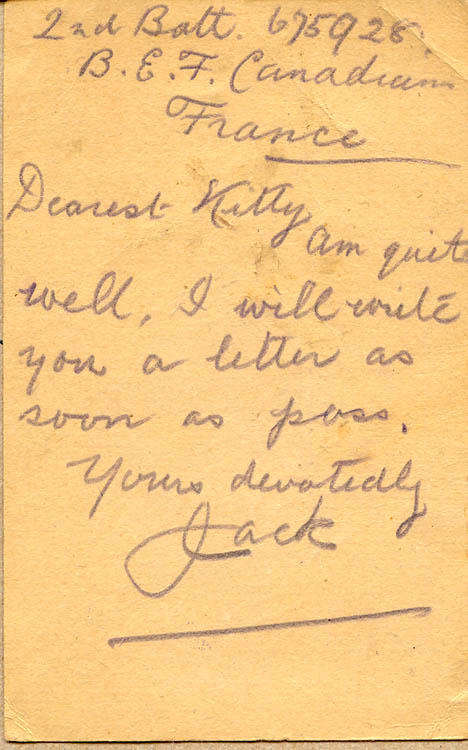 2nd Batt. 675926.
B. E. F. Canadians
France
Dearest Kitty
am quite
well, I will write
you a letter as
soon as poss.
Yours devotedly
Jack